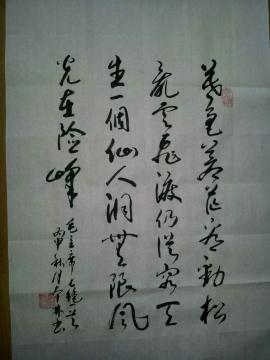 暮色蒼茫看勁松
亂云飛渡仍從容天
生一個仙人洞無限風
光在险峰
毛主席七绝一首
丙申秋月 书